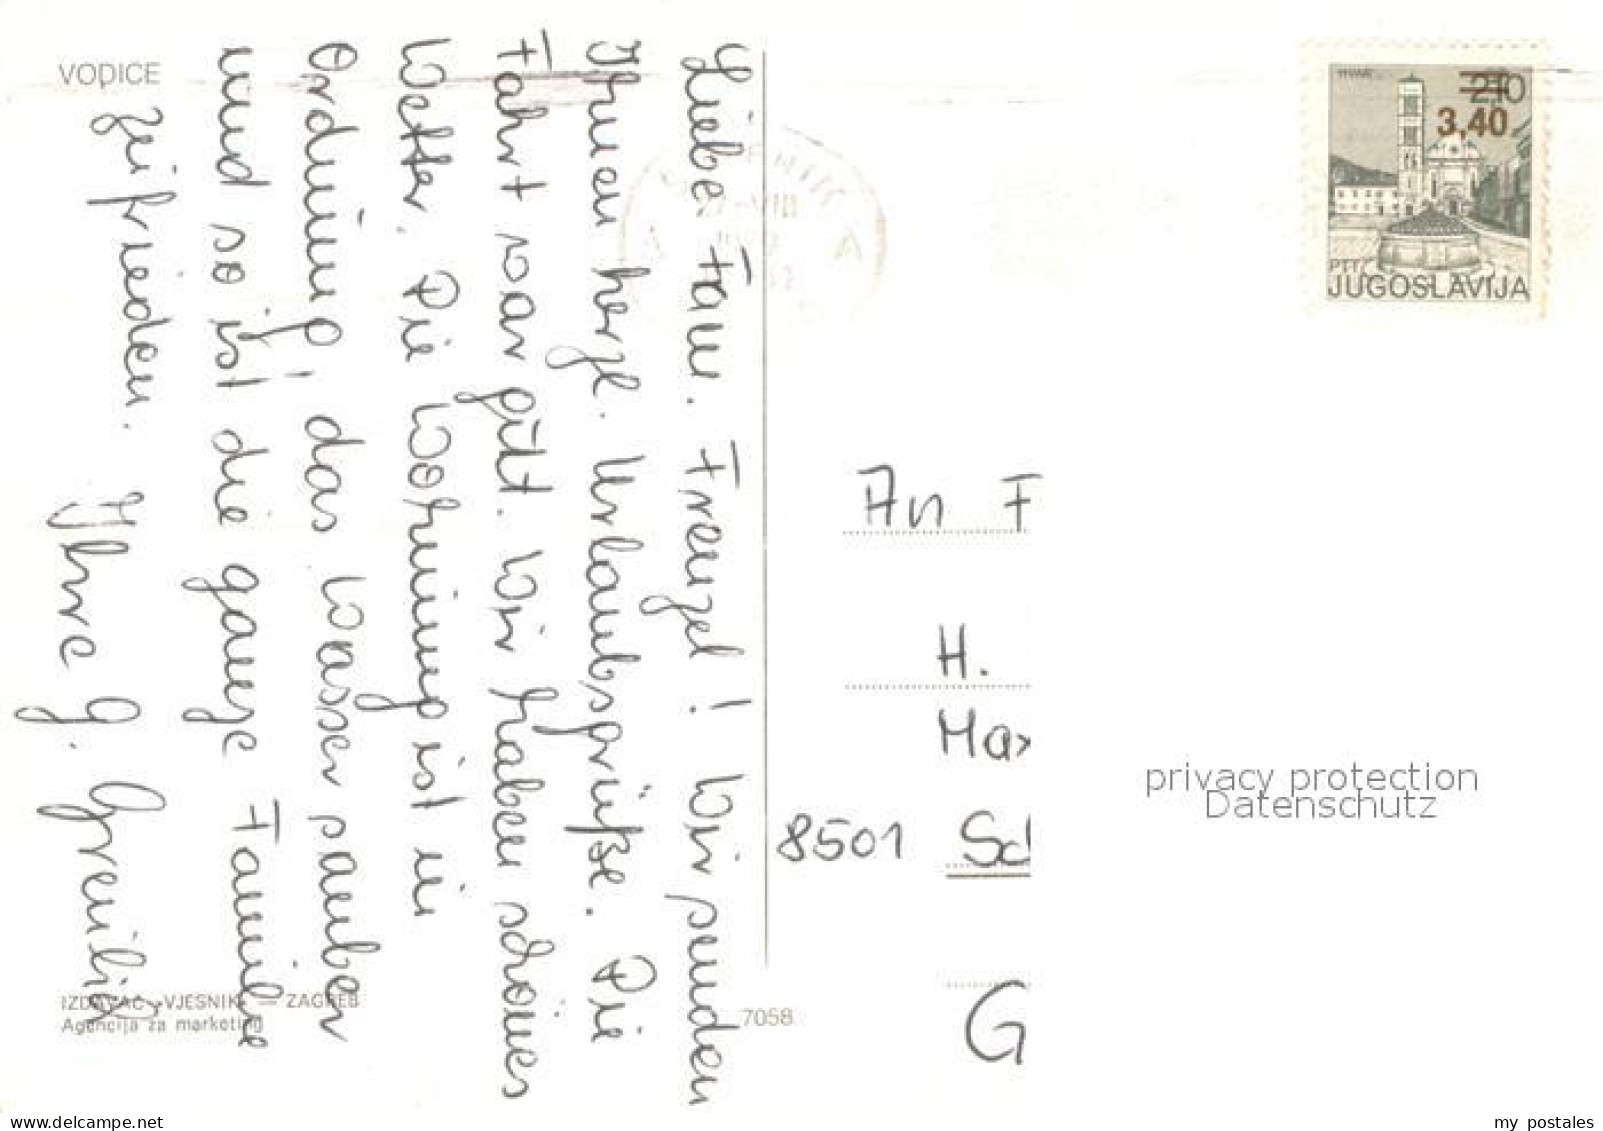 VODICE
Liebe Fam. Frenzel! Wir senden
Ihnen herzl. Urlaubsgrüße. Die
Fahrt war gut. Wir haben schönes
Wetter. Die Wohnung ist in
Ordnung, das Wasser sauber
und so ist die ganze Familie
zufrieden.
Ihre G.
IZDAVAČ »VJESNIK« — ZAGREB
Agencija za marketing
7058
HVAR
2,10
3,40
PTT
JUGOSLAVIJA
An F
H.
Max
8501 Sch
G
privacy protection
Datenschutz
my postales